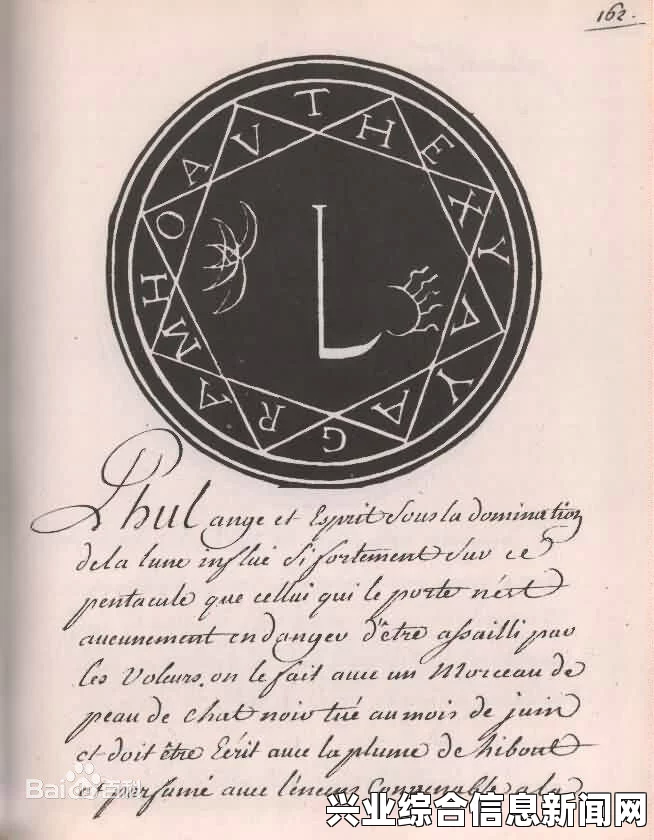 162.
T H E X Y A Y A G R A M H O A V
L
Phul ange et Esprit sous la domination
de la lune influe si fortement sur ce
pentacule que cellui qui le porte n'est
aucunement en danger d'être assailli par
les Voleurs. on le fait avec un Morceau de
peau de chat noir tué au mois de juin
et doit être Ecrit avec la plume de hibout
et parfumé avec l'encens Convenable a la
Bai 百科
兴业综合信息新闻网